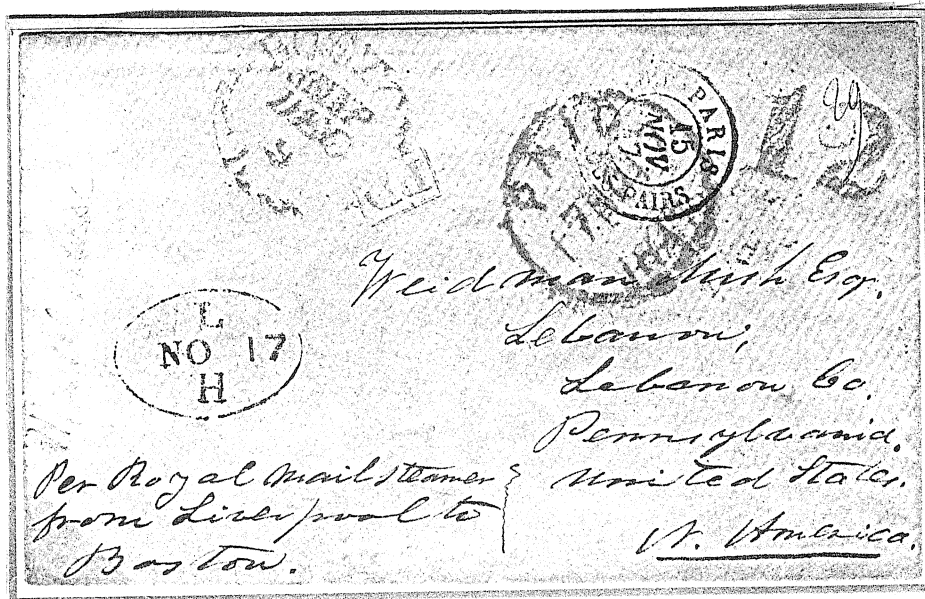 PARIS
15
NOV.
PAID
17
12
29
Weidman Esq.
Lebanon,
Lebanon Co.
Pennsylvania.
United States.
N. America.
L
NO 17
H
Per Royal Mail steamer
from Liverpool to
Boston.